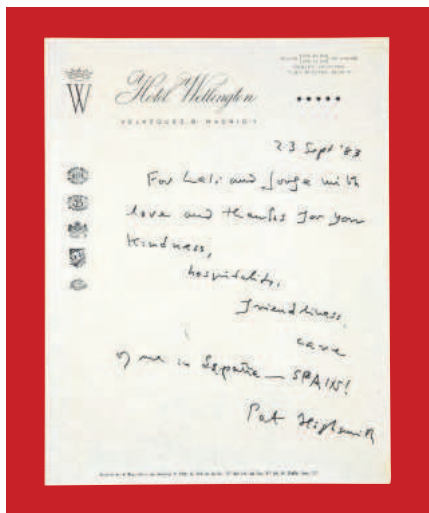 W
Hotel Wellington
VELAZQUEZ, 8 · MADRID-1
23 Sept '83
For Lali and Jorge with
love and thanks for you
kindness,
hospitality,
friendliness,
care
of me in España — SPAIN!
Pat Highsmith